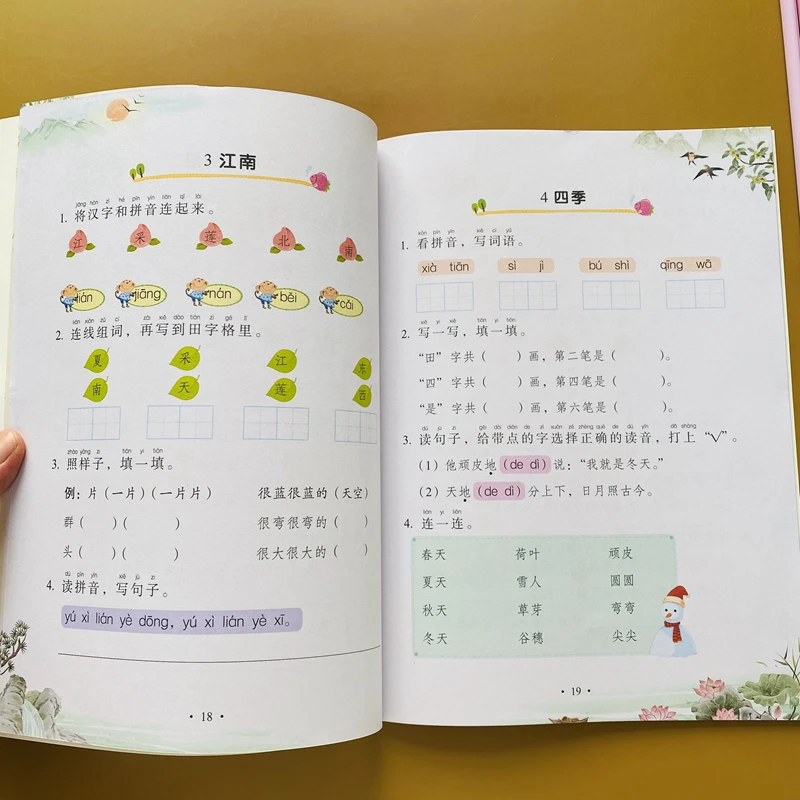 3 江南
jiāng hàn zì hé pīn yīn lián qǐ lái
1. 将汉字和拼音连起来。
江 采 莲 北 南
lián jiāng nán běi cǎi
lián xiàn zǔ cí zài xiě dào tián zì gé lǐ
2. 连线组词，再写到田字格里。
夏 采 江 东
南 天 莲 西
zhào yàng zi tián yi tián
3. 照样子，填一填。
例：片（一片）（一片片） 很蓝很蓝的（天空）
群（ ）（ ） 很弯很弯的（ ）
头（ ）（ ） 很大很大的（ ）
dú pīn yīn xiě jù zi
4. 读拼音，写句子。
yú xì lián yè dōng, yú xì lián yè xī。
· 18 ·
4 四季
kàn pīn yīn xiě cí yǔ
1. 看拼音，写词语。
xià tiān sì jì bú shì qīng wā
xiě yi xiě tián yi tián
2. 写一写，填一填。
“田”字共（ ）画，第二笔是（ ）。
“四”字共（ ）画，第四笔是（ ）。
“是”字共（ ）画，第六笔是（ ）。
dú jù zi gěi dài diǎn de zì xuǎn zé zhèng què de dú yīn dǎ shàng
3. 读句子，给带点的字选择正确的读音，打上“√”。
（1）他顽皮地（de dì）说：“我就是冬天。”
（2）天地（de dì）分上下，日月照古今。
lián yi lián
4. 连一连。
春天 荷叶 顽皮
夏天 雪人 圆圆
秋天 草芽 弯弯
冬天 谷穗 尖尖
· 19 ·